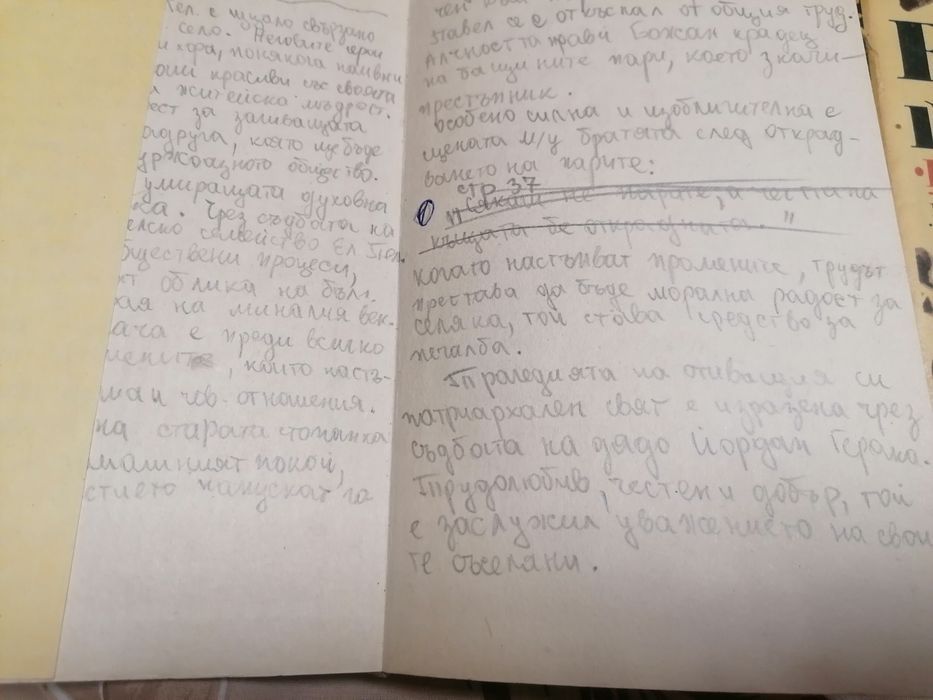 тел. е цяло свързано
село. Неговите герои
и хора, понякога наивни
красиви със своята
житейска мъдрост.
ест за заливащата
адруга, която ще бъде
уржоазното общество.
умиращата духовна
ка. Чрез съдбата на
елско семейство Ел. Пел.
бществени процеси,
ят облика на бълг.
края на миналия век.
ача е преди всичко
, които настъ-
ма и чов. отношения.
на старата стопанка
покой,
стието напускат га
чен
ставел се е откъснал от общия труд.
Алчността прави Божан крадец
на бащините пари, което значи-
престъпник.
Особено силна и изобличителна е
сцената м/у братята след открад-
ването на парите:
стр 37
① "Сякаш не парите, а честта на
къщата бе открадната."
когато настъпват промените, трудът
престава да бъде морална радост за
селяка, той става средство за
печалба.
Трагедията на отиващия си
патриархален свят е изразена чрез
съдбата на дядо Йордан Герака.
Трудолюбив, честен и добър, той
е заслужил уважението на свои
те съселяни.